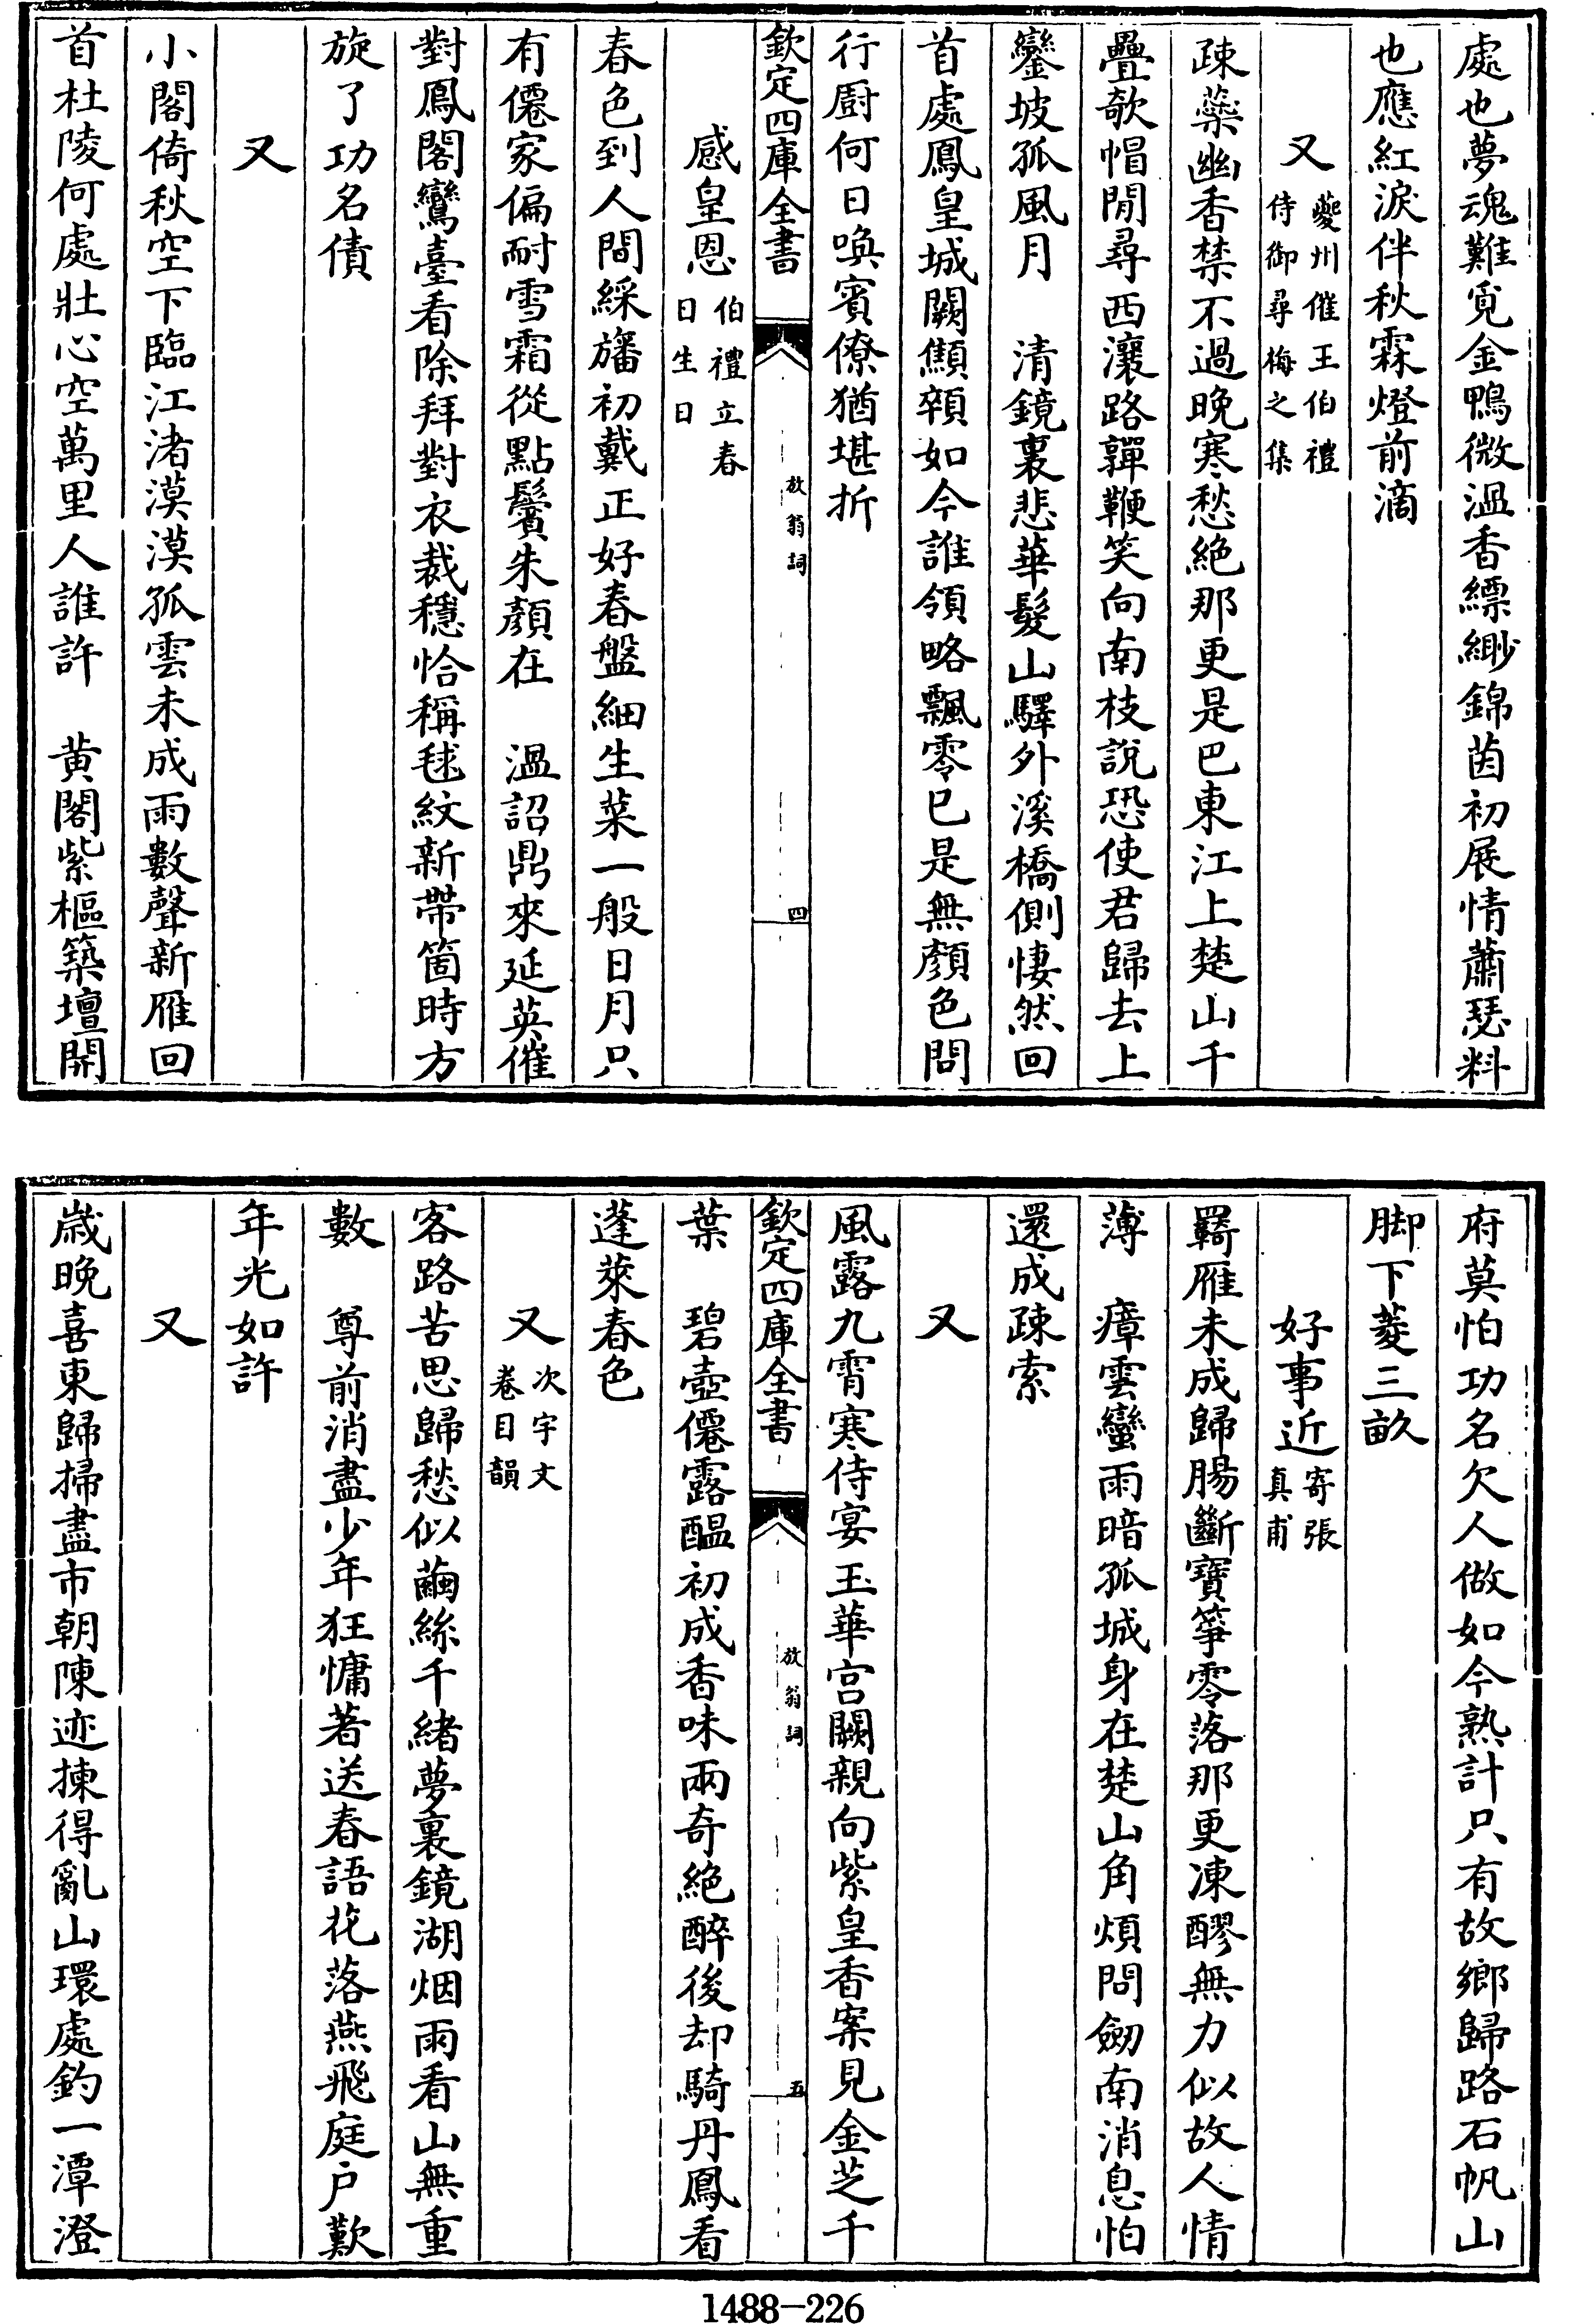 處也夢魂難覓金鴨微温香縹緲錦茵初展情蕭瑟料
也應紅淚伴秋霖燈前滴
又 夔州催王伯禮
侍御尋梅之集
疎蘂幽香禁不過晩寒愁絶那更是巴東江上楚山千
疊欹帽閒尋西瀼路嚲鞭笑向南枝說恐使君歸去上
鑾坡孤風月 清鏡裏悲華髮山驛外溪橋側悽然回
首處鳳皇城闕顦顇如今誰領略飄零已是無顔色問
行厨何日喚賓僚猶堪折
欽定四庫全書 放翁詞 四
感皇恩 伯禮立春
日生日
春色到人間綵旛初戴正好春盤細生菜一般日月只
有僊家偏耐雪霜從點鬢朱顔在 温詔鼎來延英催
對鳳閣鸞臺看除拜對衣裁穩恰稱毬紋新帶箇時方
旋了功名債
又
小閣倚秋空下臨江渚漠漠孤雲未成雨數聲新雁回
首杜陵何處壯心空萬里人誰許 黄閣紫樞築壇開
府莫怕功名欠人做如今熟計只有故鄉歸路石帆山
脚下菱三畝
好事近 寄張
真甫
羇雁未成歸腸斷寶筝零落那更凍醪無力似故人情
薄 瘴雲蠻雨暗孤城身在楚山角煩問劒南消息怕
還成疎索
又
風露九霄寒侍宴玉華宫闕親向紫皇香案見金芝千
欽定四庫全書 放翁詞 五
葉 碧壺僊露醖初成香味兩奇絶醉後却騎丹鳳看
蓬萊春色
又 次宇文
卷目韻
客路苦思歸愁似繭絲千緒夢裏鏡湖烟雨看山無重
數 尊前消盡少年狂慵著送春語花落燕飛庭户歎
年光如許
又
歲晚喜東歸掃盡市朝陳迹揀得亂山環處釣一潭澄
1488－226